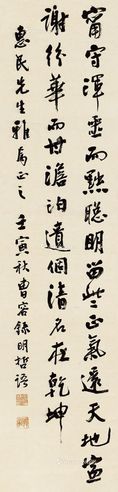 甯守渾噩而黜聰明留些正氣還天地甯
謝紛華而甘澹泊遺個清名在乾坤
惠民先生雅屬正之 壬寅秋曹容錄明哲語